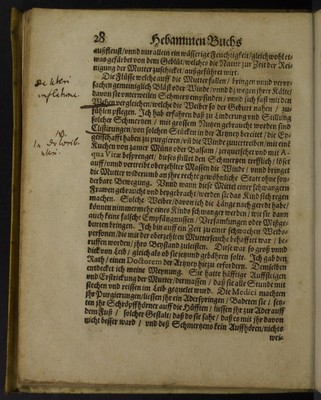 28 Hebammen Buchs
außfleust/ vnnd nur allein ein wässerige Feuchtigkeit/ gleichwohl et-
was gefärbet von dem Geblüt/ welches die Natur zur Zeit der Rei-
nigung der Mutter zuschicket/ außgeführet wirt.
Die Flüsse welche auff die Mutter fallen/ bringen vnnd verur-
sachen gemeiniglich Bläst oder Winde/ vnnd
davon sie etwas zuweilen Schmertzen empfinden/ vnnd sich fast mit den
Wehen vergleichen/ welche die Weiber so der Geburt nahen/ zu-
fühlen pflegen. Ich hab erfahren daß zu Linderung vnd Stillung
solcher Schmertzen/ mit grossem Nutzen gebraucht worden sind
Clistierungen/ von solchen Stücken in der Artzney bereitet/ die Ey-
genschafft haben zu purgieren/ vnd die Winde zuvertreiben/ mit end
Kuchen von zamer Müntz oder Balsam/ zerquetschet vnd mit A-
qua Vitæ besprenget/ dieses stillet den Schmertzen trefflich/ löset
auff/ vnnd vertreibt obgerührter Massen die Winde/ vnnd bringet
die Mutter widerumb an ihr recht gewöhnliche Statt ohne son-
derbare Bewegung. Vnnd wann diese Mittel einer schwangern
Frawen gebraucht vnd beygebracht/ werden sie das Kind sich regen
machen. Solche Weiber/ davon ich die Länge nach geredt habe/
können nimmermehr eines Kinds schwanger werden/ wie sie dann
auch keine falsche Empfängnussen/ Versamlungen oder Mißge-
burten bringen. Ich bin auff ein Zeit zu einer schwachen Weibs-
personen/ die mit der obersagten Mutterseuche behafftet war/ be-
ruffen worden/ ihro Beystand zuleisten. Diese war so groß vnnd
dick von Leib/ gleich als ob sie jetzund gebähren solte. Ich gab den
Rath/ einen Doctorem der Artzney hiezu erfordern. Demselben
entdeckte ich meine Meynung. Sie hatte häfftige Auffsteigen
vnd Ersteckung der Mutter/ dermassen/ daß sie alle Stunde mit
stechen vnd reissen im Leib gequelet ward. Die Medici machten
ihr Purgierungen/ liessen ihr ein Aderspringen/ Badeten sie/ setz-
ten ihr Schröpffhörner auff die Hüfften/ liessen ihr zur Ader auff
dem Fuß/ solcher Gestalt/ daß do sie sahe/ daß es mit ihr davon
nicht besser ward/ vnd deß Schmertzens kein Auffhören/ nichts
wei-